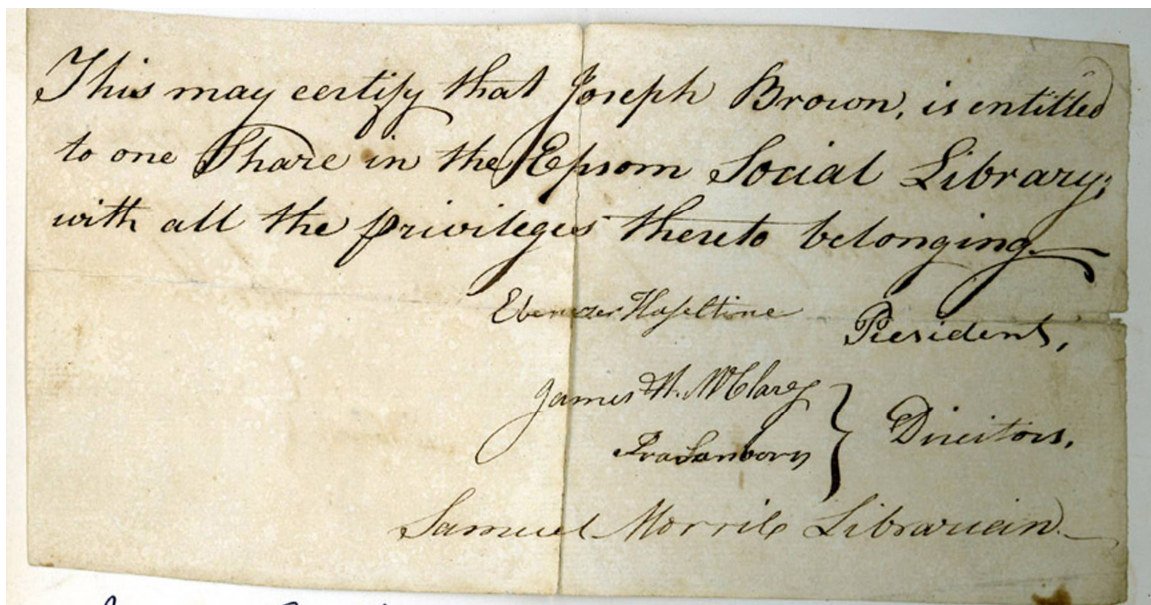 This may certify that Joseph Brown, is entitled
to one Share in the Epsom Social Library;
with all the privileges thereto belonging.
Ebenezer Haseltine President,
James H. McClary
Ira Sanborn } Directors,
Samuel Morril Librarian